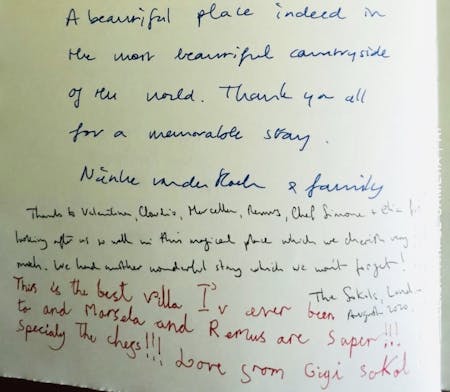 A beautiful place indeed in
the most beautiful countryside
of the world. Thank you all
for a memorable stay.
& family
Thanks to Valentina, Claudio, Marcella, Remus, Chef Simone +
looking after us so well in this magical place which we cherish very
much. We had another wonderful stay which we won't forget!
The Sokols, London
August 2020.
This is the best villa I'v ever been
to and Marsela and Remus are Super!!!
Specialy The chefs!!! Love from Gigi Sokol